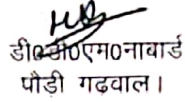 डी०डी०एम०नाबार्ड
पौड़ी गढ़वाल।